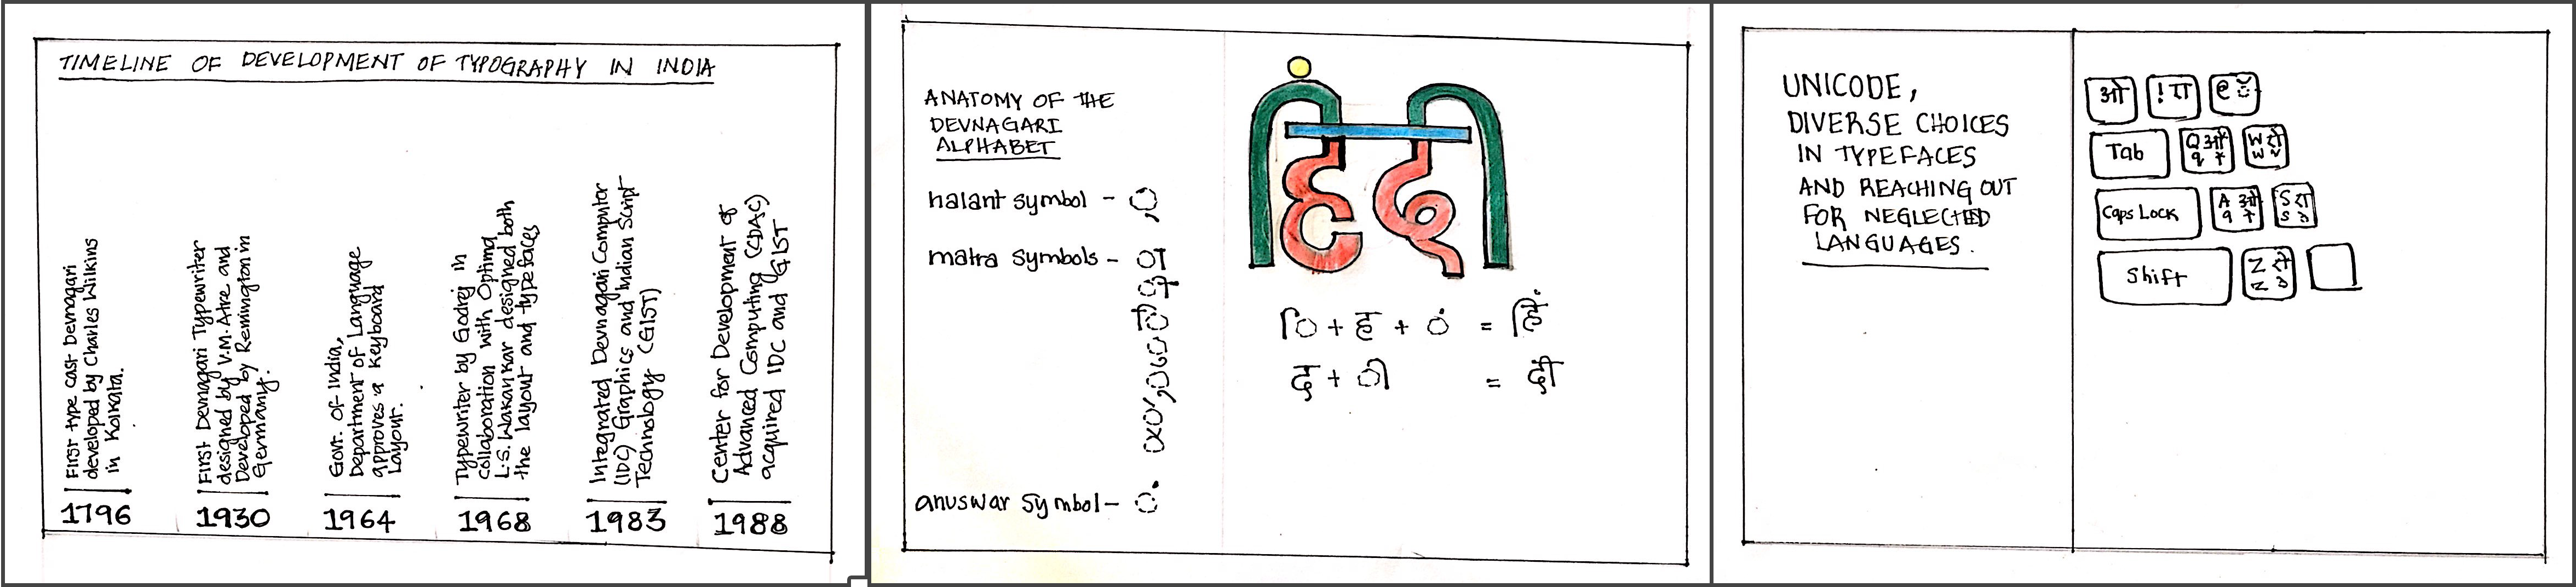 TIMELINE OF DEVELOPMENT OF TYPOGRAPHY IN INDIA
First type cast Devnagari
developed by Charles Wilkins
in Kolkata.
1796
First Devnagari Typewriter
designed by V.M. Atre and
Developed by Remington in
Germany.
1930
Govt. of India,
Department of Language
approves a Keyboard
Layout.
1964
Typewriter by Godrej in
collaboration with Optima
L.S. Wakankar designed both
the layout and typefaces
1968
Integrated Devnagari Computor
(IDC) Graphics and Indian Script
Technology (GIST)
1983
Center for Development of
Advanced Computing (CDAC)
acquired IDC and GIST
1988
ANATOMY OF THE
DEVNAGARI
ALPHABET
halant symbol - ्
matra symbols -
anuswar symbol - ं
हिंदी
ि + ह + ं = हिं
द + ी = दी
UNICODE,
DIVERSE CHOICES
IN TYPEFACES
AND REACHING OUT
FOR NEGLECTED
LANGUAGES.
ओ ! @
Tab Q औ q W w
Caps Lock A ओ S s
Shift Z z